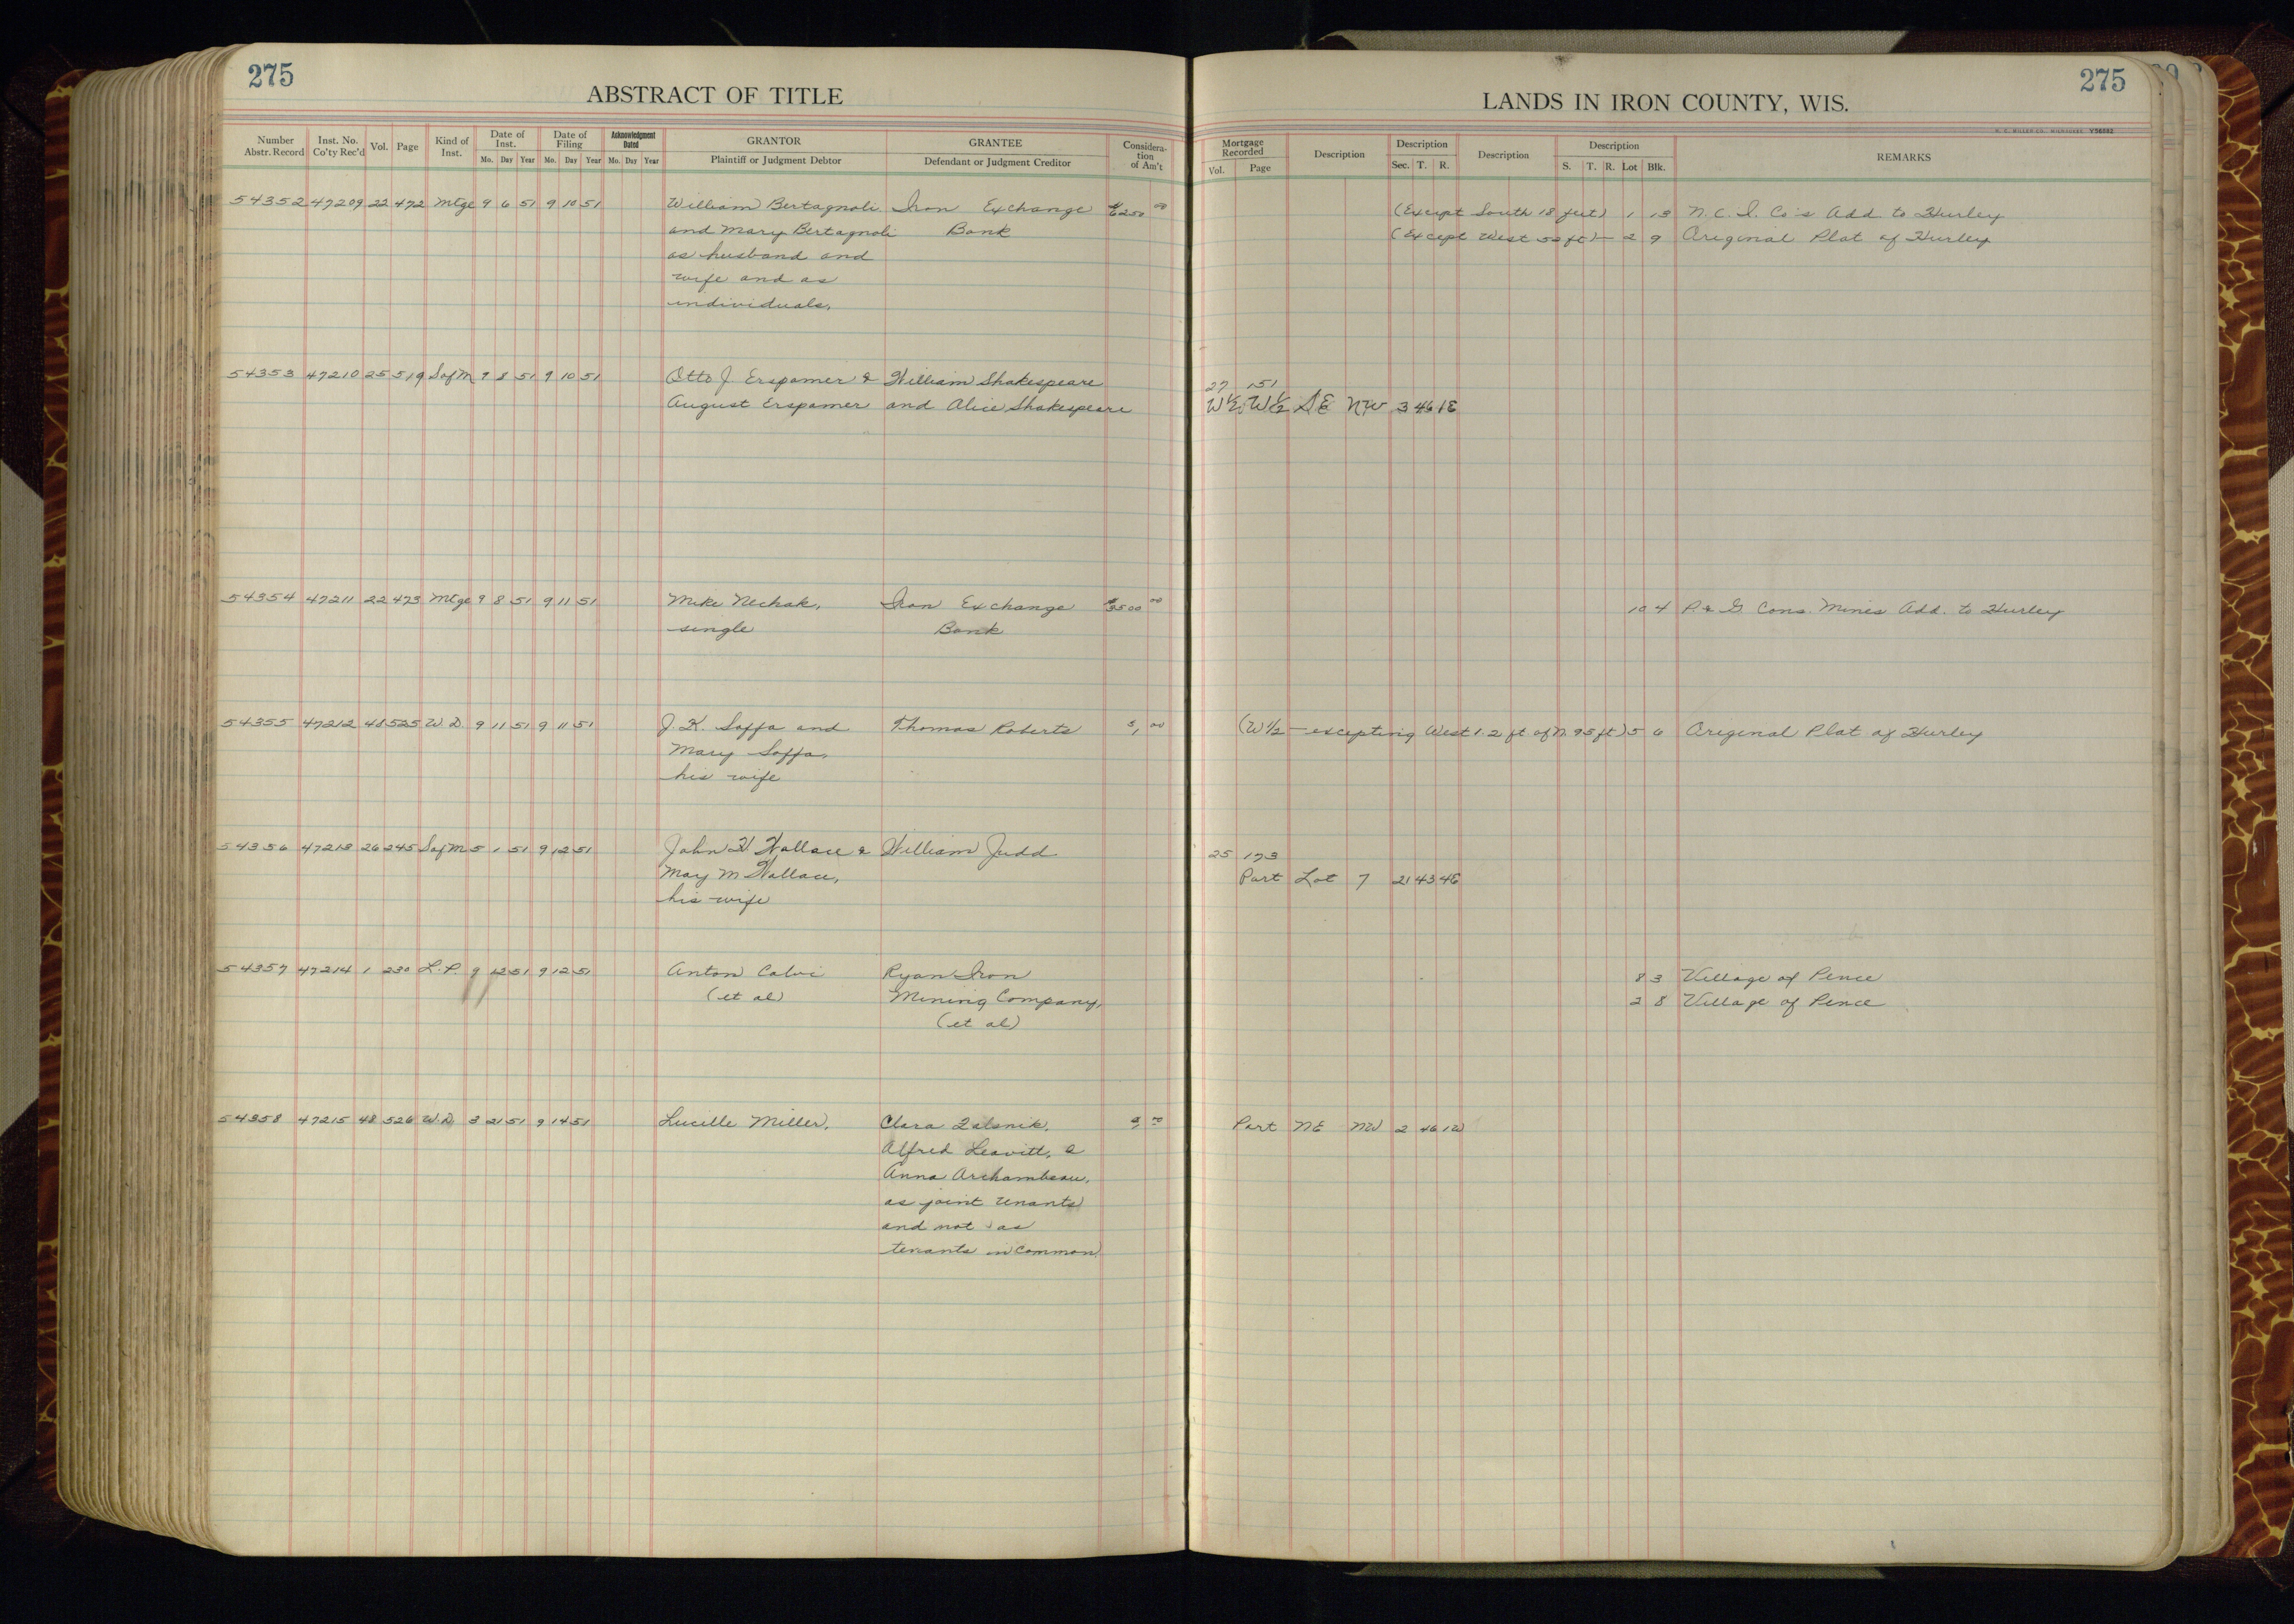 275
ABSTRACT OF TITLE
Number Abstr. Record | Inst. No. Co'ty Rec'd | Vol. | Page | Kind of Inst. | Date of Inst. Mo. Day Year | Date of Filing Mo. Day Year | Acknowledgment Dated Mo. Day Year | GRANTOR Plaintiff or Judgment Debtor | GRANTEE Defendant or Judgment Creditor | Consideration of Am't
54352 47209 22 472 Mtge 9 6 51 9 10 51 William Bertagnoli Iron Exchange $6250 00
and Mary Bertagnoli Bank
as husband and
wife and as
individuals,
54353 47210 25 519 S of M 9 8 51 9 10 51 Otto J Erspamer & William Shakespeare
August Erspamer and Alice Shakespeare
54354 47211 22 473 Mtge 9 8 51 9 11 51 Mike Nechak, Iron Exchange $3500 00
single Bank
54355 47212 48 525 W.D. 9 11 51 9 11 51 J. K. Saffa and Thomas Roberts 00
Mary Saffa,
his wife
54356 47213 26 245 S of M 5 1 51 9 12 51 John H Wallace & William Judd
Mary M Wallace,
his wife
54357 47214 1 230 L.P. 9 12 51 9 12 51 Anton Calvi Ryan Iron
(et al) Mining Company,
(et al)
54358 47215 48 526 W.D. 3 21 51 9 14 51 Lucille Miller, Clara
Alfred Leavitt, &
Anna Archambeau,
as joint tenants
and not as
tenants in common
275
LANDS IN IRON COUNTY, WIS.
Y56882
Mortgage Recorded Vol. Page | Description | Description Sec. T. R. | Description | Description S. T. R. Lot Blk. | REMARKS
(Except South 18 feet) 1 13 N.C.I. Co's Add to Hurley
(Except West 52 ft) — 2 9 Original Plat of Hurley
27 151
W½ W½ SE NW 3 46 1E
10 4 P & G Cons. Mines Add. to Hurley
(W½ — excepting West 1.2 ft of N. 95 ft) 5 6 Original Plat of Hurley
25 173
Part Lot 7 21 43 4E
8 3 Village of Pence
2 8 Village of Pence
Part NE NW 2 46 1W